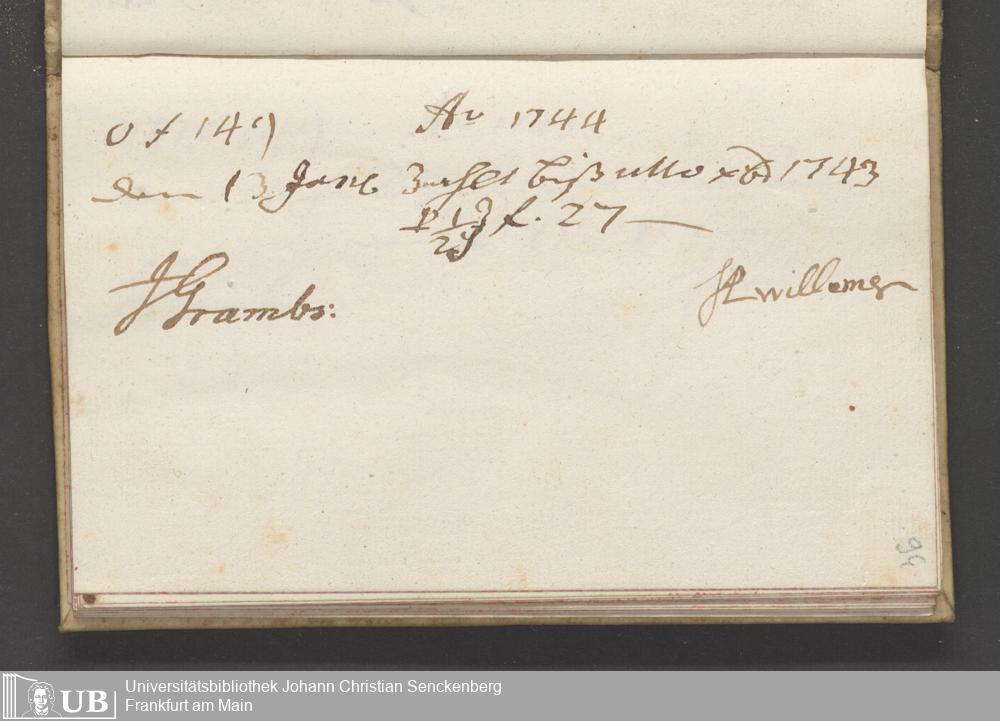 Ao 1744
den 13 Janr zahlt biß ulto xbr 1743
P 1/2 J f. 27
JGrambs:
JL willemer
96
UB Universitätsbibliothek Johann Christian Senckenberg
Frankfurt am Main